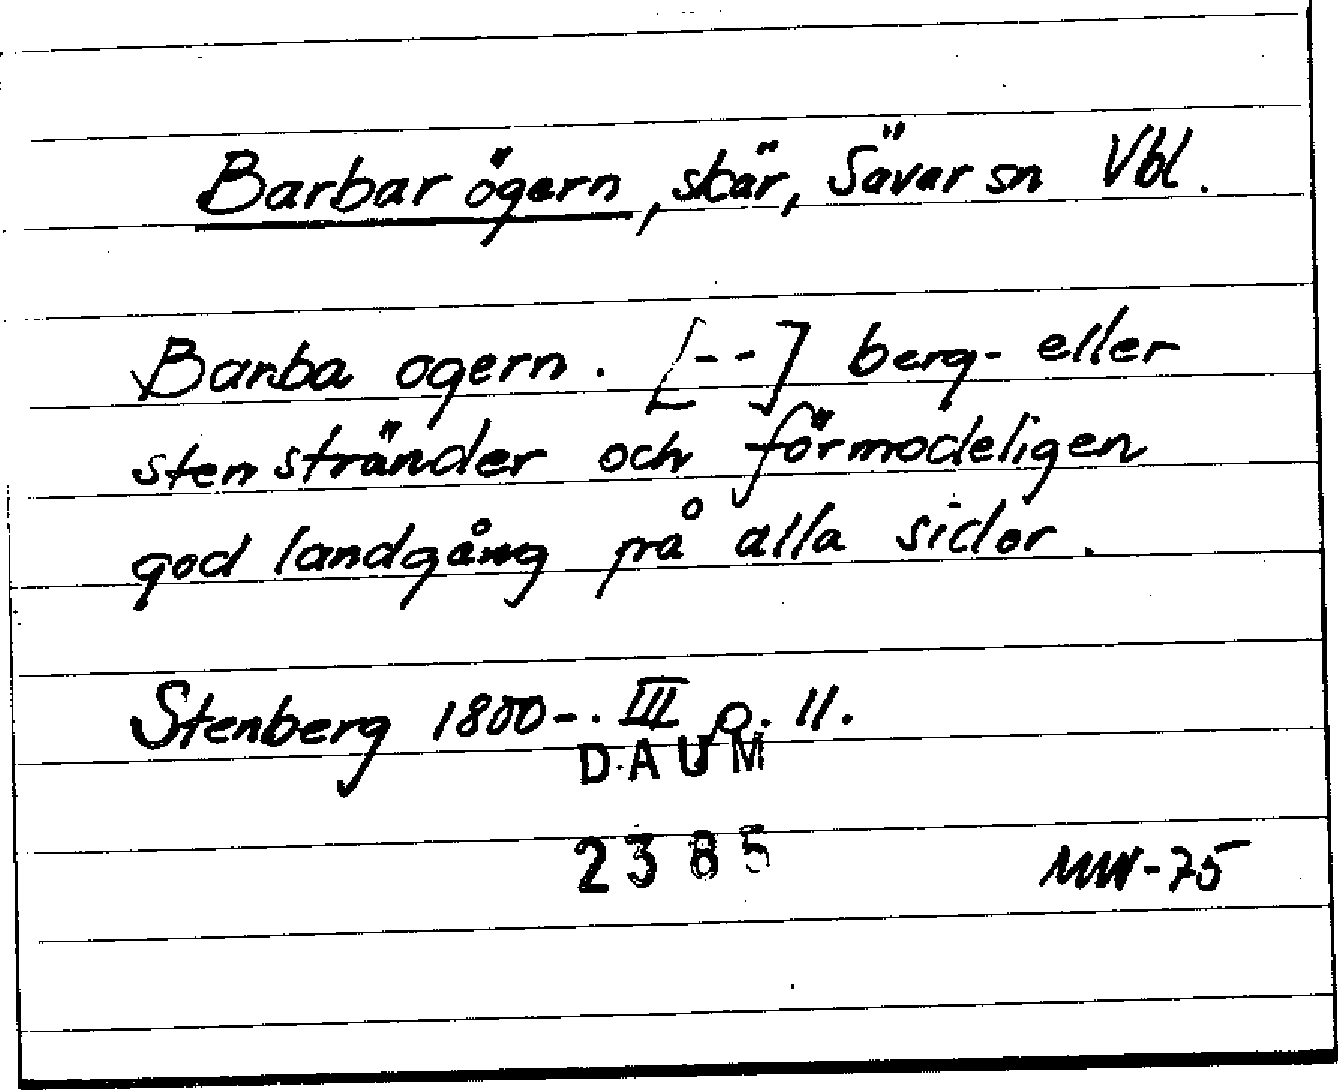 Barbar ögern, skär, Sävar sn Vbl.
Barba ogern. [--] berg- eller
stenstränder och förmodeligen
god landgång på alla sidor.
Stenberg 1800-. III p. 11.
DAUM
2385
MW-75